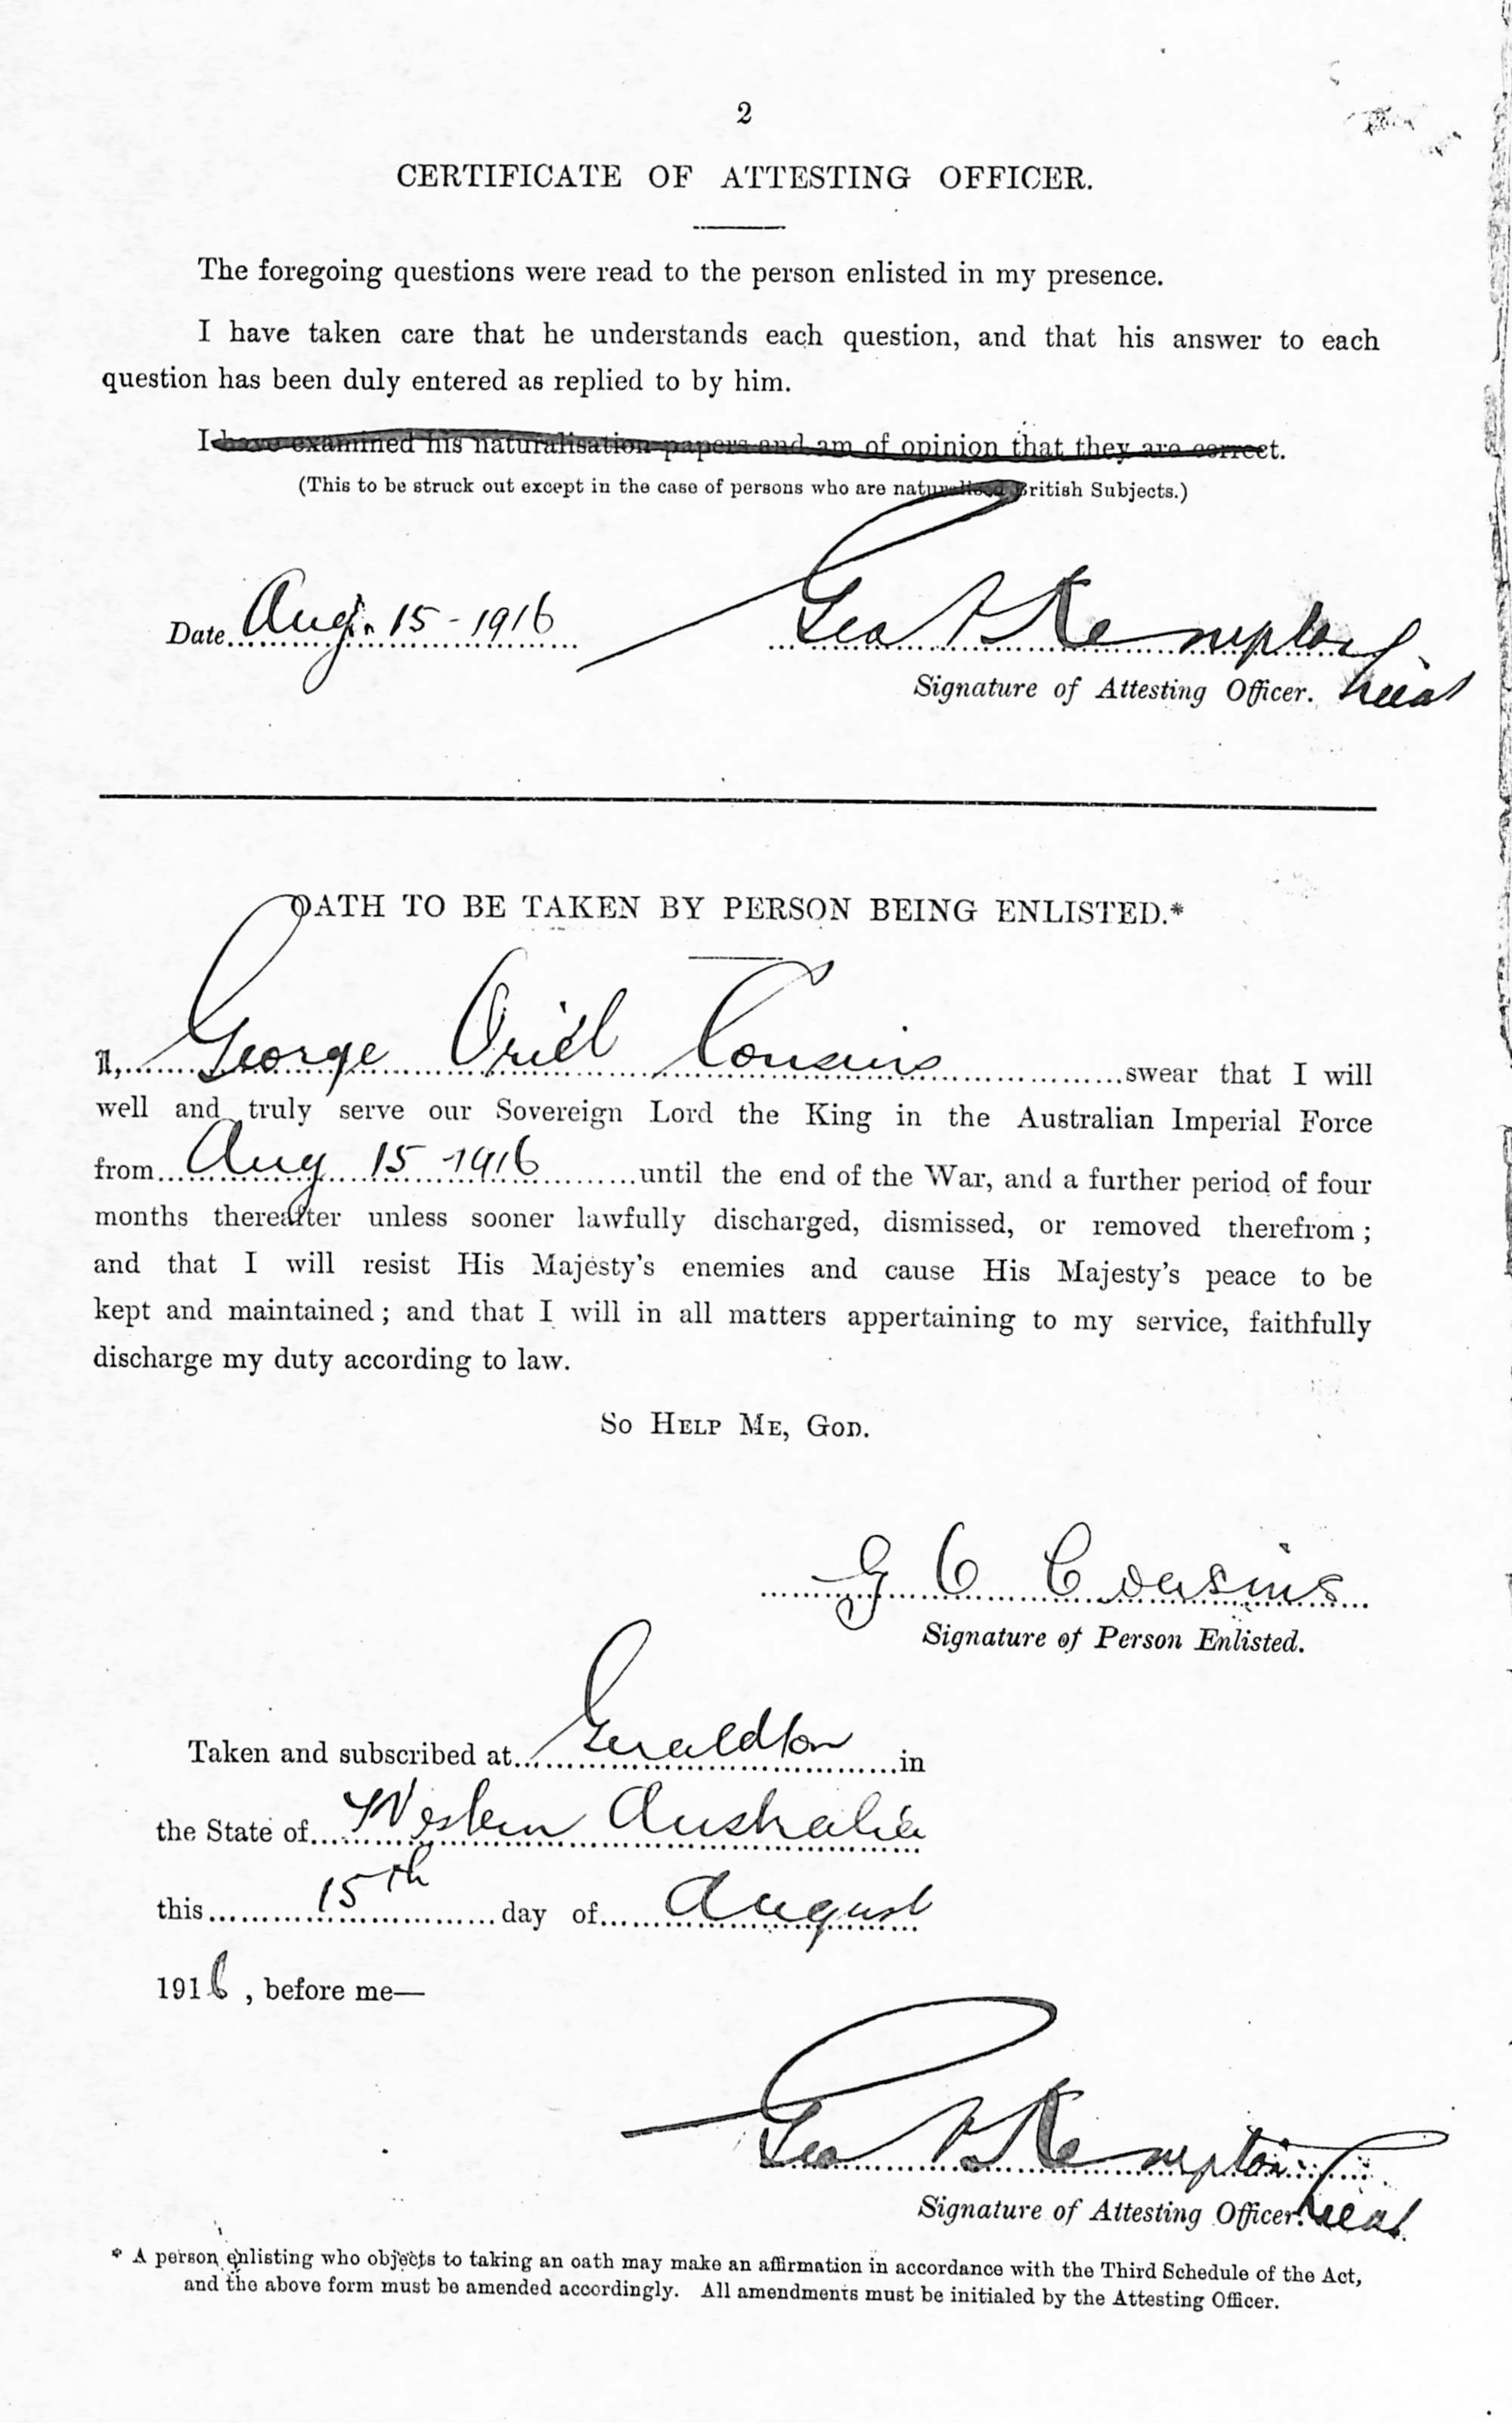 2
CERTIFICATE OF ATTESTING OFFICER.
The foregoing questions were read to the person enlisted in my presence.
I have taken care that he understands each question, and that his answer to each
question has been duly entered as replied to by him.
I have examined his naturalisation papers and am of opinion that they are correct.
(This to be struck out except in the case of persons who are naturalised British Subjects.)
Date Aug. 15-1916 Geo Kempton
Signature of Attesting Officer. Lieut
OATH TO BE TAKEN BY PERSON BEING ENLISTED.*
I, George Oriel Cousins swear that I will
well and truly serve our Sovereign Lord the King in the Australian Imperial Force
from Aug 15-1916 until the end of the War, and a further period of four
months thereafter unless sooner lawfully discharged, dismissed, or removed therefrom;
and that I will resist His Majesty's enemies and cause His Majesty's peace to be
kept and maintained; and that I will in all matters appertaining to my service, faithfully
discharge my duty according to law.
SO HELP ME, GOD.
G O Cousins
Signature of Person Enlisted.
Taken and subscribed at Geraldton in
the State of Western Australia
this 15th day of August
1916, before me—
Geo Kempton
Signature of Attesting Officer. Lieut
* A person enlisting who objects to taking an oath may make an affirmation in accordance with the Third Schedule of the Act,
and the above form must be amended accordingly. All amendments must be initialed by the Attesting Officer.